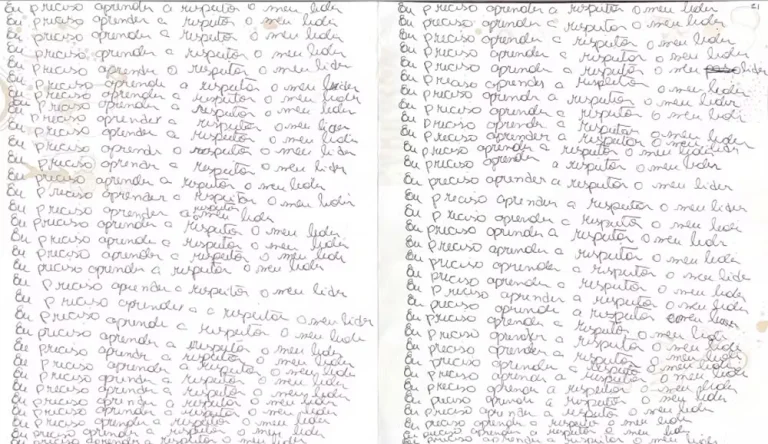 Eu preciso aprender a respeitar o meu lider
Eu preciso aprender a respeitar o meu lider
Eu preciso aprender a respeitar o meu lider
Eu preciso aprender a respeitar o meu lider
Eu preciso aprender o respeitar o meu lider
Eu preciso aprender a respeitar o meu lider
Eu preciso aprender a respeitar o meu lider
Eu preciso aprender a respeitar o meu lider
Eu preciso aprender a respeitar o meu lider
Eu preciso aprender a respeitar o meu lider
Eu preciso aprender o respeitar o meu lider
Eu preciso aprender a respeitar o meu lider
Eu preciso aprender a respeitar o meu lider
Eu preciso aprender a respeitar o meu lider
Eu preciso aprender a respeitar o meu lider
Eu preciso aprender a respeitar o meu lider
Eu preciso aprender a respeitar o meu lider
Eu preciso aprender a respeitar o meu lider
Eu preciso aprender a respeitar o meu lider
Eu preciso aprender a respeitar o meu lider
Eu preciso aprender a respeitar o meu lider
Eu preciso aprender a respeitar o meu lider
Eu preciso aprender a respeitar o meu lider
Eu preciso aprender a respeitar o meu lider
Eu preciso aprender a respeitar o meu lider
Eu preciso aprender a respeitar o meu lider
Eu preciso aprender a respeitar o meu lider
Eu preciso aprender a respeitar o meu lider
Eu preciso aprender a respeitar o meu lider
Eu preciso aprender a respeitar o meu lider
Eu preciso aprender a respeitar o meu lider
Eu preciso aprender a respeitar o meu lider
21
Eu preciso aprender a respeitar o meu lider
Eu preciso aprender a respeitar o meu lider
Eu preciso aprender a respeitar o meu lider
Eu preciso aprender a respeitar o meu lider
Eu preciso aprender a respeitar o meu lider
Eu preciso aprender a respeitar o meu lider
Eu preciso aprender a respeitar o meu lider
Eu preciso aprender a respeitar o meu lider
Eu preciso aprender a respeitar o meu lider
Eu preciso aprender a respeitar o meu lider
Eu preciso aprender a respeitar o meu lider
Eu preciso aprender a respeitar o meu lider
Eu preciso aprender a respeitar o meu lider
Eu preciso aprender a respeitar o meu lider
Eu preciso aprender a respeitar o meu lider
Eu preciso aprender a respeitar o meu lider
Eu preciso aprender a respeitar o meu lider
Eu preciso aprender a respeitar o meu lider
Eu preciso aprender a respeitar o meu lider
Eu preciso aprender a respeitar o meu lider
Eu preciso aprender a respeitar o meu lider
Eu preciso aprender a respeitar o meu lider
Eu preciso aprender a respeitar o meu lider
Eu preciso aprender a respeitar o meu lider
Eu preciso aprender a respeitar o meu lider
Eu preciso aprender a respeitar o meu lider
Eu preciso aprender a respeitar o meu lider
Eu preciso aprender a respeitar o meu lider
Eu preciso aprender a respeitar o meu lider
Eu preciso aprender a respeitar o meu lider
Eu preciso aprender a respeitar o meu lider